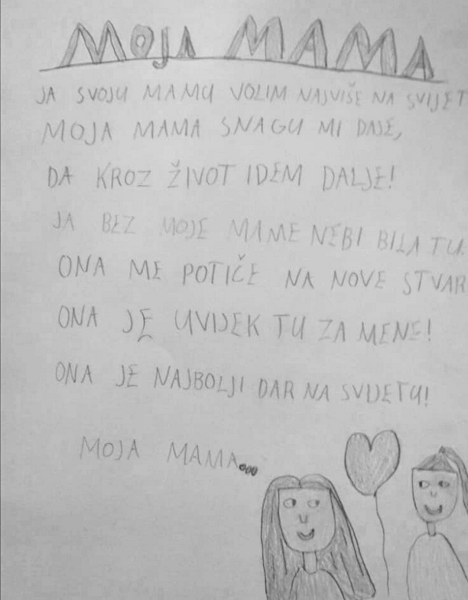 MOJA MAMA
JA SVOJU MAMU VOLIM NAJVIŠE NA SVIJET
MOJA MAMA SNAGU MI DAJE,
DA KROZ ŽIVOT IDEM DALJE!
JA BEZ MOJE MAME NEBI BILA TU.
ONA ME POTIČE NA NOVE STVAR
ONA JE UVIJEK TU ZA MENE!
ONA JE NAJBOLJI DAR NA SVIJETU!
MOJA MAMA...